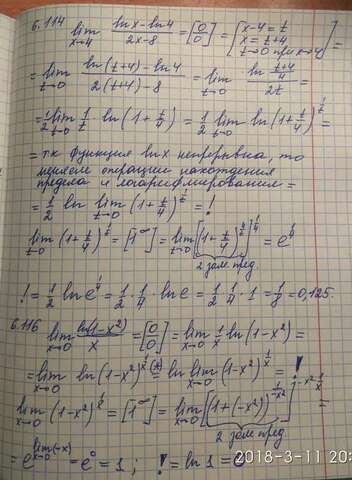 6.114 lim x→4 (ln x - ln 4)/(2x-8) = [0/0] = [x-4=t x=t+4 t→0 при x→4] =
= lim t→0 (ln(t+4) - ln 4)/(2(t+4)-8) = lim t→0 (ln (t+4)/4)/(2t) =
= 1/2 lim t→0 1/t · ln(1+t/4) = 1/2 lim t→0 ln(1+t/4)^(1/t) =
= т.к функция ln x непрерывна, то
меняем операции нахождения
предела и логарифмирования =
= 1/2 ln lim t→0 (1+t/4)^(1/t) = !
lim t→0 (1+t/4)^(1/t) = [1^∞] = lim t→0 [(1+t/4)^(4/t)]^(1/4) = e^(1/4)
2 зам. пред.
! = 1/2 ln e^(1/4) = 1/2 · 1/4 · ln e = 1/2 · 1/4 · 1 = 1/8 = 0,125.
6.116 lim x→0 ln(1-x²)/x = [0/0] = lim x→0 1/x ln(1-x²) =
= lim x→0 ln(1-x²)^(1/x) = ln lim x→0 (1-x²)^(1/x) = !
lim x→0 (1-x²)^(1/x) = [1^∞] = lim x→0 [(1+(-x²))^(1/-x²)]^(-x² · 1/x) =
2 зам. пред.
= e^(lim x→0 (-x)) = e^0 = 1; ! = ln 1 = 0
2018-3-11 20